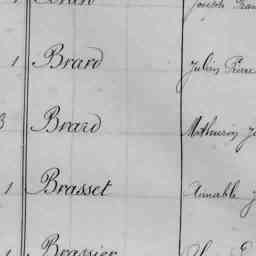 1 Brard Julien Pierre
3 Brard Mathurin
1 Brasset Aimable
1 Brassier